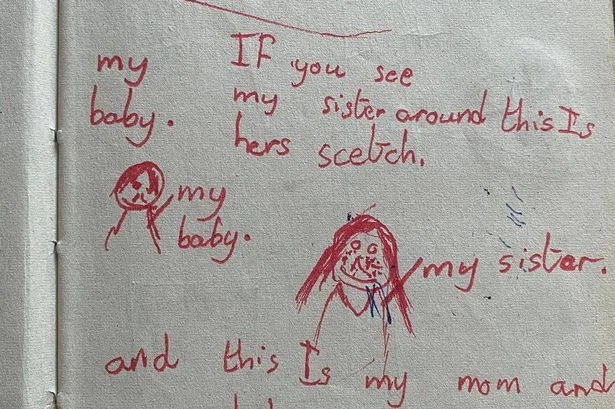 my
baby.
IF you see
my sister around this Is
hers scetch.
my
baby.
my sister.
and this Is my mom and